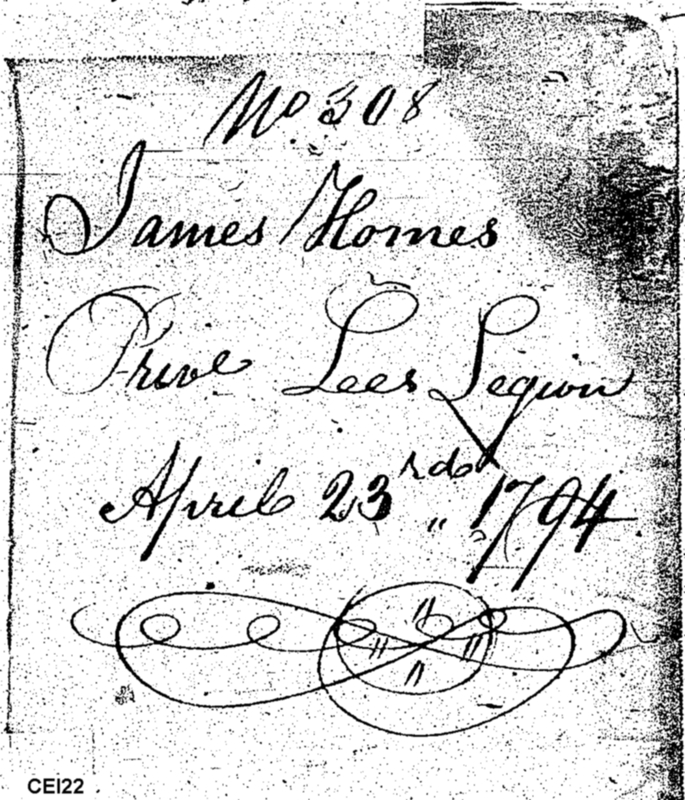 No 308
James Homes
Prive Lees Legion
April 23rd " 1794
CEI22